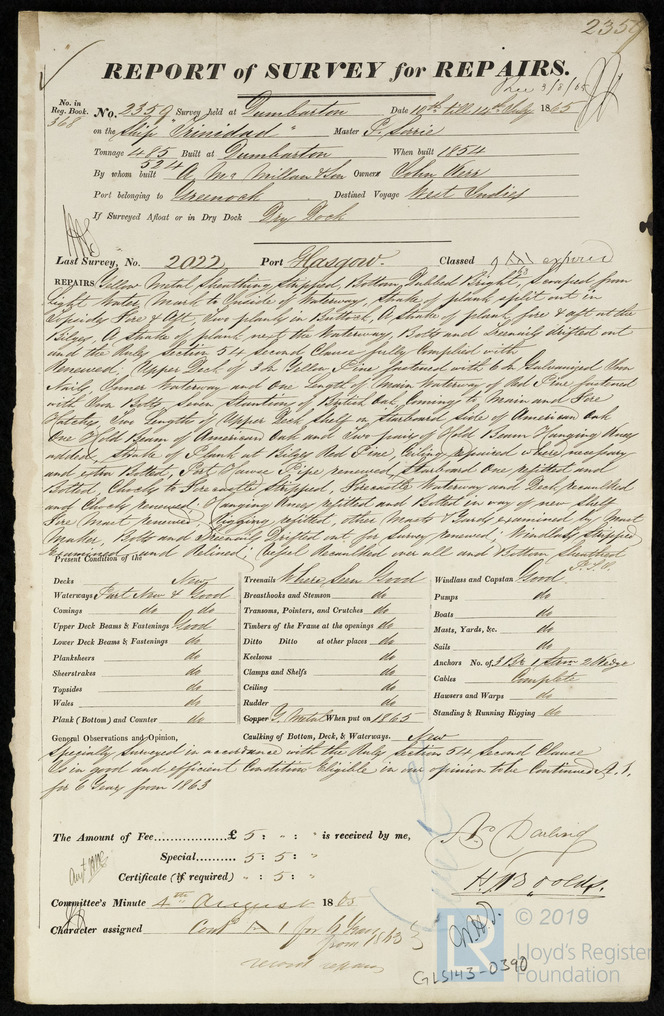 2359
REPORT of SURVEY for REPAIRS.
Rec 3/8/65
No. in Reg. Book. 368
No. 2359 Survey held at Dumbarton Date 10th till 14th July 1865
on the Ship "Trinidad" Master P. Lorrie
Tonnage 485 Built at Dumbarton When built 1854
524
By whom built A McMillan & Son Owners John Kerr
Port belonging to Greenock Destined Voyage West Indies
If Surveyed Afloat or in Dry Dock Dry Dock
Last Survey, No. 2022 Port Glasgow. Classed 9 A1 expired
63
REPAIRS Yellow Metal Sheathing Stripped, Bottom Dubbed Bright, Scraped from
Light Water Mark to Outside of Waterway, Strake of plank split out in
Topsides Fore & Aft, Two planks in Buttock, A Strake of plank fore & aft at the
Bilges, A Strake of plank next the Waterway, Bolts and Treenails drifted out
and the Rules Section 54 Second Clause fully Complied with
Renewed; Upper Deck of 3 in Yellow Pine fastened with 6 in Galvanized Iron
Nails, Inner Waterway and One Length of Main Waterway of Red Pine fastened
with Iron Bolts, Seven Stantions of British Oak, Comings to Main and Fore
Hatches, Two Lengths of Upper Deck Shelf on Starboard side of American Oak
One Hold Beam of American Oak and Two pairs of Hold Beam Hanging Knees
added, Strake of Plank at Bilges Red Pine, Ceiling repaired where necessary
and extra Bolted, Port Hawse Pipe renewed, Starboard One refitted and
Bolted, Chocks to Forecastle Stripped, Forecastle Waterway and Deck recaulked
and Chocks renewed; Hanging Knees refitted and Bolted in way of new Shelf
Fore Mast renewed, Rigging refitted, other Masts & Yards examined by Mast
Maker, Bolts and Treenails Drifted out for Survey renewed; Windlass Stripped
Examined and Relined; Vessel Recaulked over all and Bottom Sheathed
P.T.O.
Present Condition of the
Decks New
Waterways Part New & Good
Comings do do
Upper Deck Beams & Fastenings Good
Lower Deck Beams & Fastenings do
Planksheers do
Sheerstrakes do
Topsides do
Wales do
Plank (Bottom) and Counter do
Treenails Where Seen Good
Breasthooks and Stemson do
Transoms, Pointers, and Crutches do
Timbers of the Frame at the openings do
Ditto Ditto at other places do
Keelsons do
Clamps and Shelfs do
Ceiling do
Rudder do
Copper Y. Metal When put on 1865
Caulking of Bottom, Deck, & Waterways. New
Windlass and Capstan Good
Pumps do
Boats do
Masts, Yards, &c. do
Sails do
Anchors No. of 3 Br 1 Strm 2 Kedge
Cables Complete
Hawsers and Warps do
Standing & Running Rigging do
General Observations and Opinion,
Specially Surveyed in accordance with the Rules Section 54 Second Clause
Is in good and efficient Condition Eligible in our opinion to be Continued A.1.
for 6 Years from 1863
The Amount of Fee £ 5 : " : " is received by me,
Special 5 : 5 : "
Certificate (if required) " : 5 : "
Committee's Minute 4th August 1865
Character assigned Contd A 1 for 6 Years
from 1863
record repairs
Darling
GLS143-0390
© 2019
Lloyd's Register
Foundation